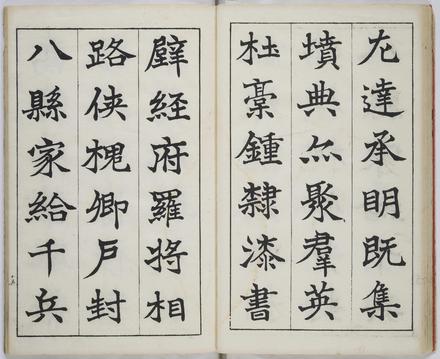 左達承眀既集
墳典亦聚羣英
杜稾鍾隸漆書
壁經府羅將相
路俠槐卿戶封
八縣家給千兵